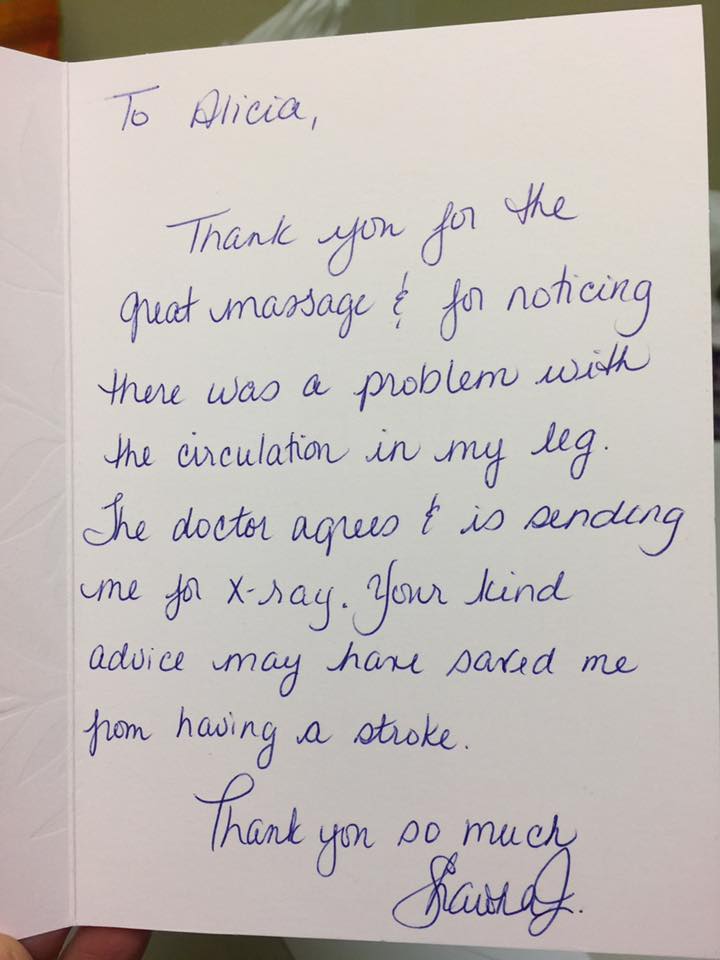 To Alicia,
Thank you for the
great massage & for noticing
there was a problem with
the circulation in my leg.
The doctor agrees & is sending
me for x-ray. Your kind
advice may have saved me
from having a stroke.
Thank you so much